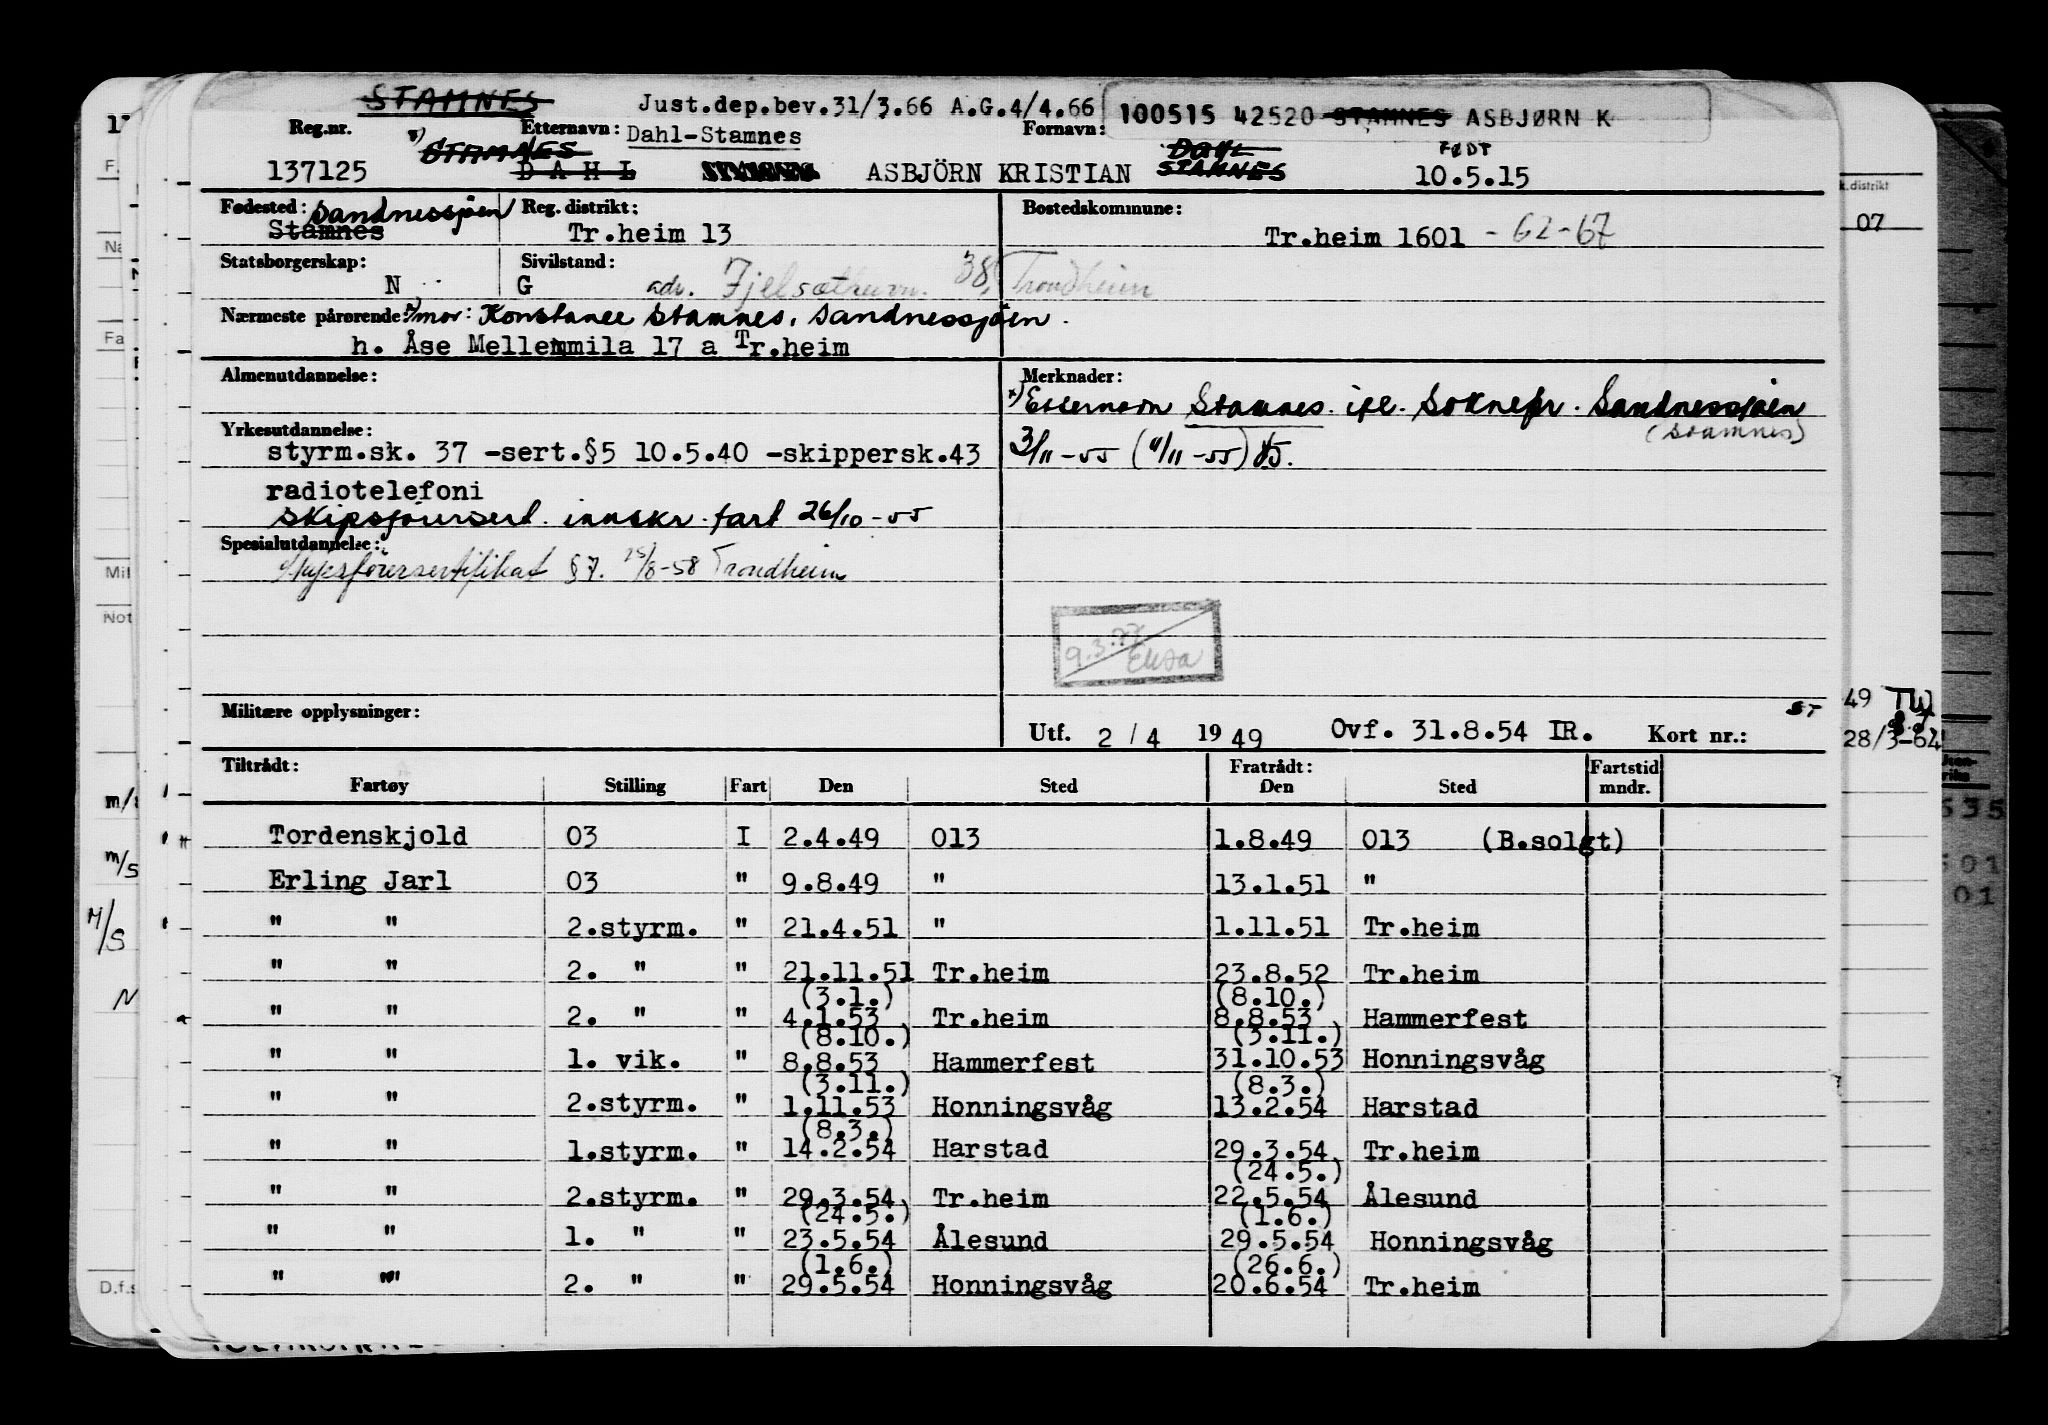 STAMNES Just.dep.bev.31/3.66 A.G.4/4.66 100515 42520 STAMNES ASBJØRN K
Reg.nr. Etternavn: Dahl-Stamnes Fornavn:
x) STAMNES DAHL FØDT
137125 DAHL ASBJÖRN KRISTIAN STAMNES 10.5.15
Fødested: Sandnessjøen Reg. distrikt: Bostedskommune:
Stamnes Tr.heim 13 Tr.heim 1601 - 62-67
Statsborgerskap: Sivilstand:
N G adr. 38, Trondheim
Nærmeste pårørende: mor: Konstanee Stamnes, Sandnessjøen
h. Åse Mellemmila 17 a Tr.heim
Almenutdannelse: Merknader:
x) Etternavn Stamnes ifl. Soknepr. Sandnessjøen
(Stamnes)
Yrkesutdannelse: 3/11-55 (4/11-55)
styrm.sk. 37 -sert.§5 10.5.40 -skippersk.43
radiotelefoni
Skipsførersert. innskr. fart 26/10-55
Spesialutdannelse:
Skipsførersertifikat §7. 25/8-58 Trondheim
9.3.77
Elisa
Militære opplysninger: ST
Utf. 2 / 4 19 49 Ovf. 31.8.54 IR. Kort nr.:
Tiltrådt: Fratrådt: Fartstid
Fartøy Stilling Fart Den Sted Den Sted mndr.
Tordenskjold 03 I 2.4.49 013 1.8.49 013 (B.solgt)
Erling Jarl 03 " 9.8.49 " 13.1.51 "
" " 2.styrm. " 21.4.51 " 1.11.51 Tr.heim
" " 2. " " 21.11.51 Tr.heim 23.8.52 Tr.heim
(3.1.) (8.10.)
" " 2. " " 4.1.53 Tr.heim 8.8.53 Hammerfest
(8.10.) (3.11.)
" " 1. vik. " 8.8.53 Hammerfest 31.10.53 Honningsvåg
(3.11.) (8.3.)
" " 2.styrm. " 1.11.53 Honningsvåg 13.2.54 Harstad
(8.3.)
" " 1.styrm. " 14.2.54 Harstad 29.3.54 Tr.heim
(24.5.)
" " 2.styrm. " 29.3.54 Tr.heim 22.5.54 Ålesund
(24.5.) (1.6.)
" " 1. " " 23.5.54 Ålesund 29.5.54 Honningsvåg
(1.6.) (26.6.)
" " 2. " " 29.5.54 Honningsvåg 20.6.54 Tr.heim
k.distrikt
07
49 TW
28/3-64
535
501
01
Mil
Not
m/s
M/S
N
D.f.s